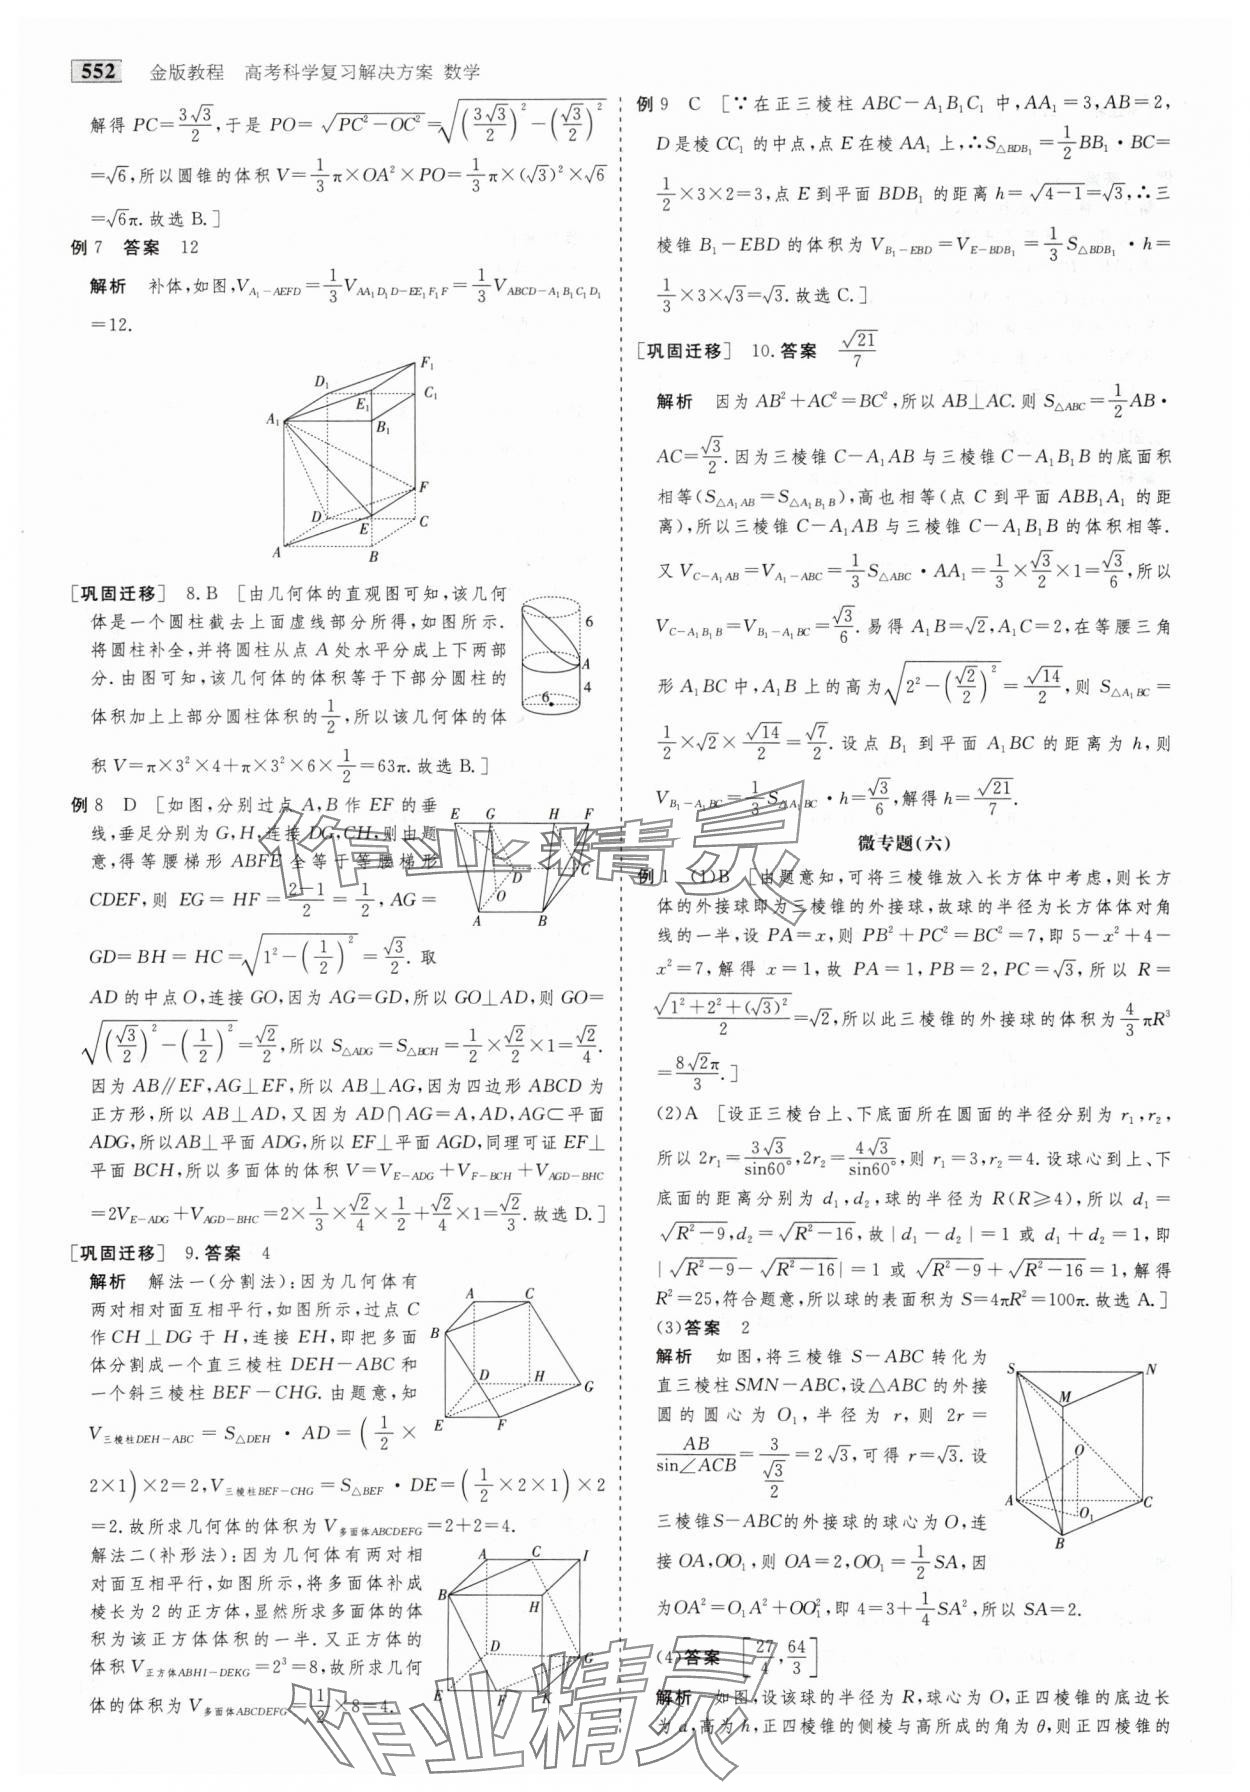 552 金版教程 高考科学复习解决方案 数学
解得 PC=3√3/2,于是 PO=√(PC²-OC²)=√((3√3/2)²-(√3/2)²)
=√6,所以圆锥的体积 V=1/3π×OA²×PO=1/3π×(√3)²×√6
=√6π.故选 B.]
例 7 答案 12
解析 补体,如图,V_{A₁-AEFD}=1/3V_{AA₁D₁D-EE₁F₁F}=1/3V_{ABCD-A₁B₁C₁D₁}
=12.
F₁
D₁
C₁
E₁
A₁
B₁
F
D
E
C
A
B
[巩固迁移] 8.B [由几何体的直观图可知,该几何
体是一个圆柱截去上面虚线部分所得,如图所示.
将圆柱补全,并将圆柱从点 A 处水平分成上下两部
分.由图可知,该几何体的体积等于下部分圆柱的
体积加上上部分圆柱体积的1/2,所以该几何体的体
积 V=π×3²×4+π×3²×6×1/2=63π.故选 B.]
6
A
4
6
例 8 D [如图,分别过点 A,B 作 EF 的垂
线,垂足分别为 G,H,连接 DG,CH,则由题
意,得等腰梯形 ABFE 全等于等腰梯形
CDEF,则 EG=HF=(2-1)/2=1/2,AG=
GD=BH=HC=√(1²-(1/2)²)=√3/2.取
E G H F
D C
O
A B
AD 的中点 O,连接 GO,因为 AG=GD,所以 GO⊥AD,则 GO=
√((√3/2)²-(1/2)²)=√2/2,所以 S_{△ADG}=S_{△BCH}=1/2×√2/2×1=√2/4.
因为 AB∥EF,AG⊥EF,所以 AB⊥AG,因为四边形 ABCD 为
正方形,所以 AB⊥AD,又因为 AD∩AG=A,AD,AG⊂平面
ADG,所以AB⊥平面 ADG,所以 EF⊥平面 AGD,同理可证 EF⊥
平面 BCH,所以多面体的体积 V=V_{E-ADG}+V_{F-BCH}+V_{AGD-BHC}
=2V_{E-ADG}+V_{AGD-BHC}=2×1/3×√2/4×1/2+√2/4×1=√2/3.故选 D.]
[巩固迁移] 9.答案 4
解析 解法一(分割法):因为几何体有
两对相对面互相平行,如图所示,过点 C
作 CH⊥DG 于 H,连接 EH,即把多面
体分割成一个直三棱柱 DEH-ABC 和
一个斜三棱柱 BEF-CHG.由题意,知
V_{三棱柱DEH-ABC}=S_{△DEH}·AD=(1/2×
2×1)×2=2,V_{三棱柱BEF-CHG}=S_{△BEF}·DE=(1/2×2×1)×2
=2.故所求几何体的体积为 V_{多面体ABCDEFG}=2+2=4.
A C
B
D H
G
E F
解法二(补形法):因为几何体有两对相
对面互相平行,如图所示,将多面体补成
棱长为 2 的正方体,显然所求多面体的体
积为该正方体体积的一半.又正方体的
体积 V_{正方体ABHI-DEKG}=2³=8,故所求几何
体的体积为 V_{多面体ABCDEFG}=1/2×8=4.
A C I
B H
D
G
E F K
例 9 C [∵在正三棱柱 ABC-A₁B₁C₁ 中,AA₁=3,AB=2,
D是棱 CC₁ 的中点,点 E 在棱 AA₁ 上,∴S_{△BDB₁}=1/2BB₁·BC=
1/2×3×2=3,点 E 到平面 BDB₁ 的距离 h=√(4-1)=√3,∴三
棱锥 B₁-EBD 的体积为 V_{B₁-EBD}=V_{E-BDB₁}=1/3S_{△BDB₁}·h=
1/3×3×√3=√3.故选 C.]
[巩固迁移] 10.答案 √21/7
解析 因为 AB²+AC²=BC²,所以 AB⊥AC.则 S_{△ABC}=1/2AB·
AC=√3/2.因为三棱锥 C-A₁AB 与三棱锥 C-A₁B₁B 的底面积
相等(S_{△A₁AB}=S_{△A₁B₁B}),高也相等(点 C 到平面 ABB₁A₁ 的距
离),所以三棱锥 C-A₁AB 与三棱锥 C-A₁B₁B 的体积相等.
又 V_{C-A₁AB}=V_{A₁-ABC}=1/3S_{△ABC}·AA₁=1/3×√3/2×1=√3/6,所以
V_{C-A₁B₁B}=V_{B₁-A₁BC}=√3/6.易得 A₁B=√2,A₁C=2,在等腰三角
形 A₁BC 中,A₁B 上的高为√(2²-(√2/2)²)=√14/2,则 S_{△A₁BC}=
1/2×√2×√14/2=√7/2.设点 B₁ 到平面 A₁BC 的距离为 h,则
V_{B₁-A₁BC}=1/3S_{△A₁BC}·h=√3/6,解得 h=√21/7.
微专题(六)
例 1 (1)B [由题意知,可将三棱锥放入长方体中考虑,则长方
体的外接球即为三棱锥的外接球,故球的半径为长方体体对角
线的一半,设 PA=x,则 PB²+PC²=BC²=7,即 5-x²+4-
x²=7,解得 x=1,故 PA=1,PB=2,PC=√3,所以 R=
√(1²+2²+(√3)²)/2=√2,所以此三棱锥的外接球的体积为4/3πR³
=8√2π/3.]
(2)A [设正三棱台上、下底面所在圆面的半径分别为 r₁,r₂,
所以 2r₁=3√3/sin60°,2r₂=4√3/sin60°,则 r₁=3,r₂=4.设球心到上、下
底面的距离分别为 d₁,d₂,球的半径为 R(R≥4),所以 d₁=
√(R²-9),d₂=√(R²-16),故|d₁-d₂|=1 或 d₁+d₂=1,即
|√(R²-9)-√(R²-16)|=1 或 √(R²-9)+√(R²-16)=1,解得
R²=25,符合题意,所以球的表面积为 S=4πR²=100π.故选 A.]
(3)答案 2
解析 如图,将三棱锥 S-ABC 转化为
直三棱柱 SMN-ABC,设△ABC 的外接
圆的圆心为 O₁,半径为 r,则 2r=
AB/sin∠ACB=3/(√3/2)=2√3,可得 r=√3.设
三棱锥S-ABC的外接球的球心为 O,连
接 OA,OO₁,则 OA=2,OO₁=1/2SA,因
为OA²=O₁A²+OO₁²,即 4=3+1/4SA²,所以 SA=2.
S N
M
O
A C
O₁
B
(4)答案 [27/4,64/3]
解析 如图,设该球的半径为 R,球心为 O,正四棱锥的底边长
为 a,高为 h,正四棱锥的侧棱与高所成的角为 θ,则正四棱锥的
作业精灵
作业精灵